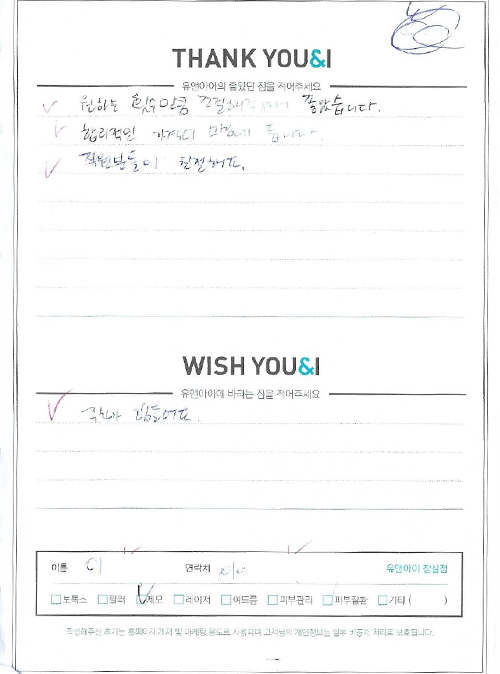 THANK YOU&I
유앤아이의 좋았던 점을 적어주세요
원하는 횟수만큼 조절해 좋았습니다.
합리적인 가격이 마음에 듭니다.
직원분들이 친절해요.
WISH YOU&I
유앤아이에 바라는 점을 적어주세요
힘들어요.
이름 이 연락처 유앤아이 잠실점
보톡스 필러 제모 레이저 여드름 피부관리 피부질환 기타 ( )
작성해주신 후기는 홈페이지 게재 및 마케팅 용도로 사용되며 고객님의 개인정보는 일부 비공개 처리로 보호됩니다.